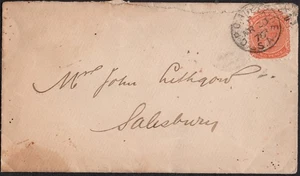 Mr John Lithgow
Salesbury